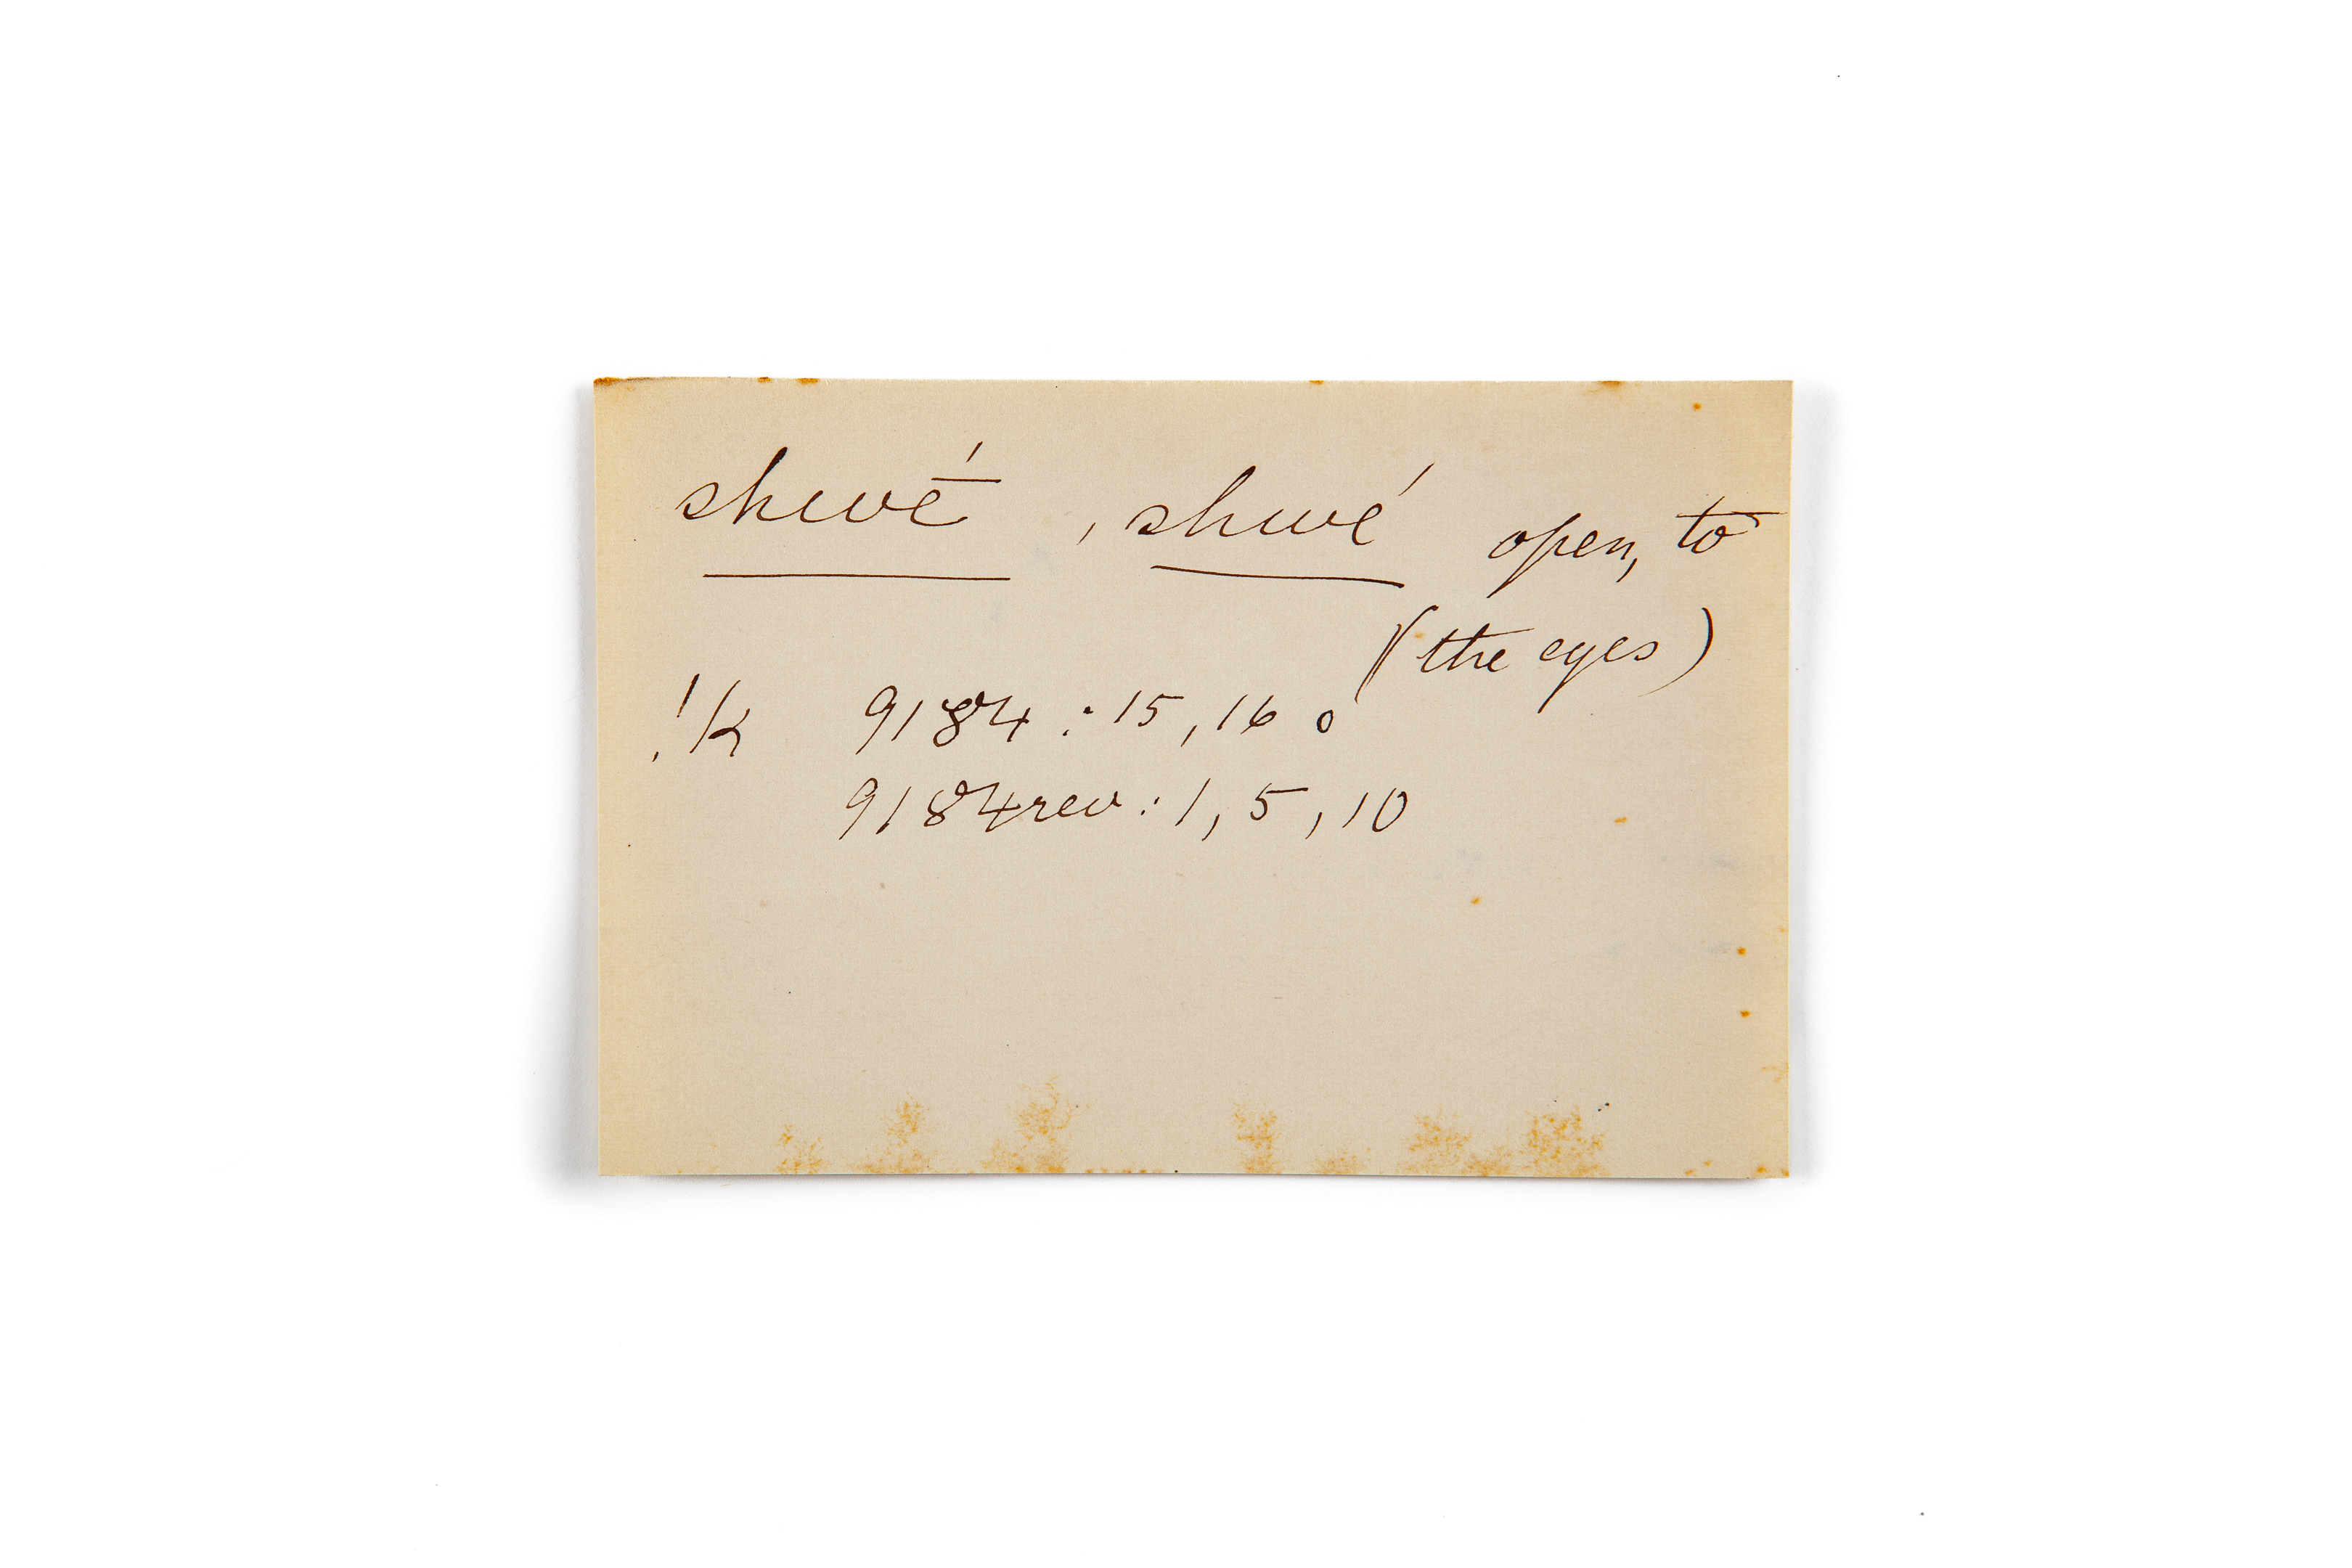 shwḗ, shwé open, to
(the eyes)
!k 9184 : 15, 16 o
9184 rev : 1, 5, 10